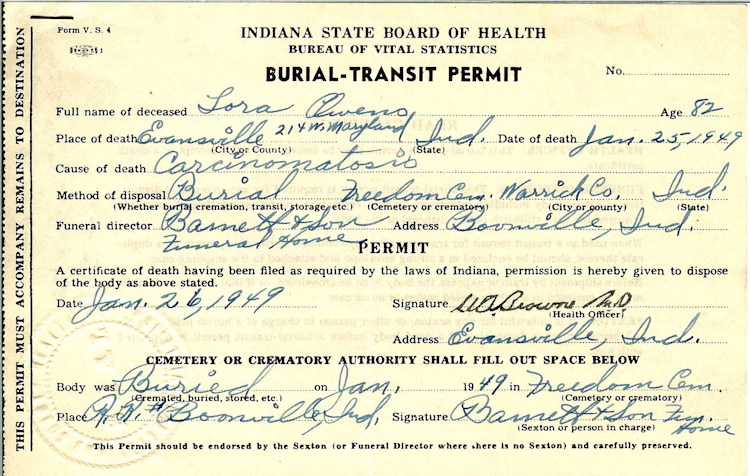 THIS PERMIT MUST ACCOMPANY REMAINS TO DESTINATION
Form V. S. 4
INDIANA STATE BOARD OF HEALTH
BUREAU OF VITAL STATISTICS
BURIAL-TRANSIT PERMIT
No.
Full name of deceased Lora Owens Age 82
Place of death Evansville 214 W. Maryland Ind. Date of death Jan. 25, 1949
(City or County) (State)
Cause of death Carcinomatosis
Method of disposal Burial Freedom Cem. Warrick Co. Ind.
(Whether burial, cremation, transit, storage, etc.) (Cemetery or crematory) (City or county) (State)
Funeral director Barnett & Son Address Boonville, Ind.
Funeral Home
PERMIT
A certificate of death having been filed as required by the laws of Indiana, permission is hereby given to dispose
of the body as above stated.
Date Jan. 26, 1949 Signature Browne M.D
(Health Officer)
Address Evansville, Ind.
CEMETERY OR CREMATORY AUTHORITY SHALL FILL OUT SPACE BELOW
Body was Buried on Jan. 1949 in Freedom Cem.
(Cremated, buried, stored, etc.) (Cemetery or crematory)
Place Boonville, Ind. Signature Barnett & Son Fun.
Home
(Sexton or person in charge)
This Permit should be endorsed by the Sexton (or Funeral Director where there is no Sexton) and carefully preserved.